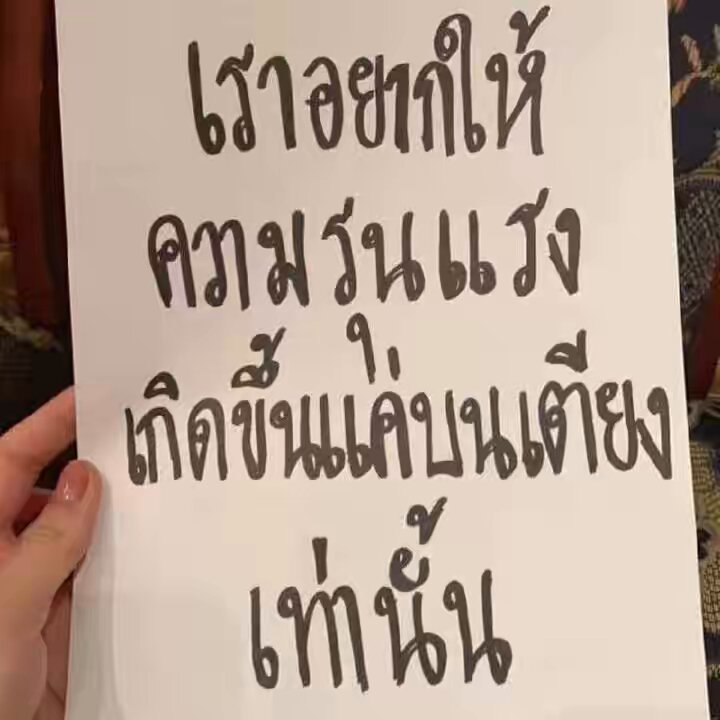 เราอยากให้
ความรุนแรง
เกิดขึ้นแค่บนเตียง
เท่านั้น